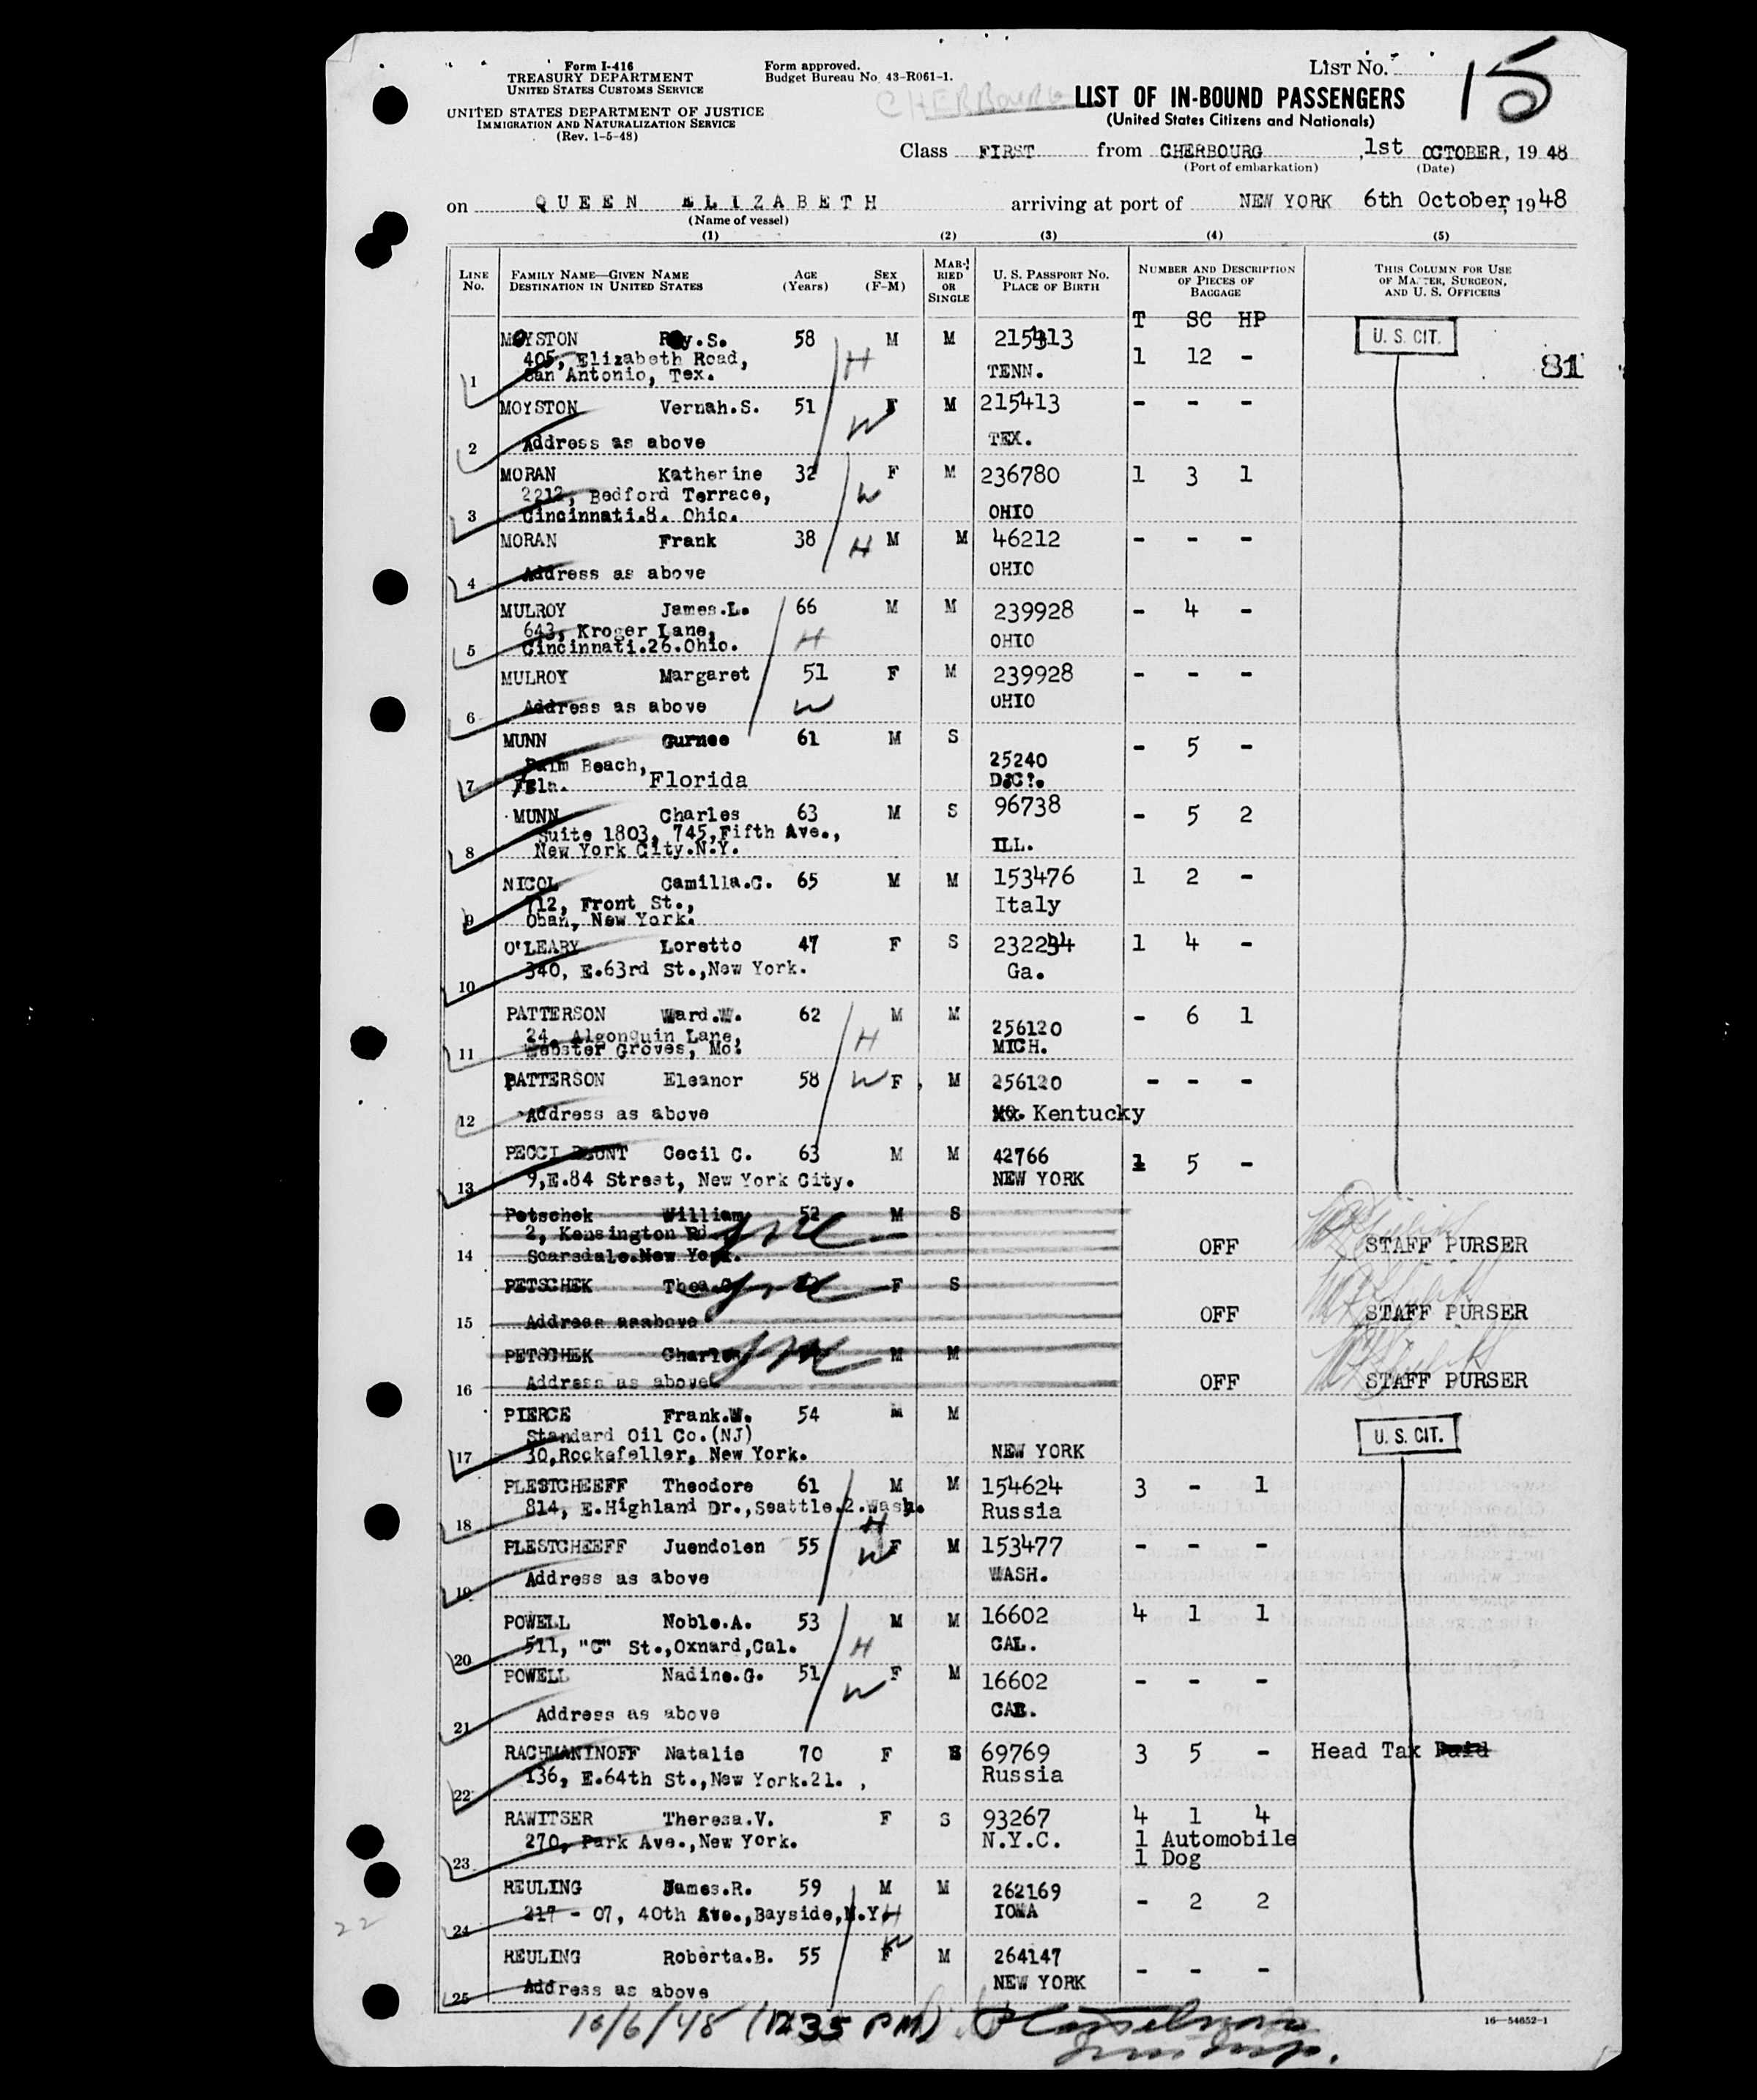 Form I-416
TREASURY DEPARTMENT
UNITED STATES CUSTOMS SERVICE
UNITED STATES DEPARTMENT OF JUSTICE
IMMIGRATION AND NATURALIZATION SERVICE
(Rev. 1-5-48)
Form approved.
Budget Bureau No. 43-R061-1.
CHERBOURG
List No. 15
LIST OF IN-BOUND PASSENGERS
(United States Citizens and Nationals)
Class FIRST from CHERBOURG , 1st OCTOBER, 19 48
(Port of embarkation) (Date)
on QUEEN ELIZABETH arriving at port of NEW YORK 6th October, 1948
(Name of vessel)
(1) (2) (3) (4) (5)
LINE No. FAMILY NAME—GIVEN NAME DESTINATION IN UNITED STATES AGE (Years) SEX (F-M) MARRIED OR SINGLE U. S. PASSPORT NO. PLACE OF BIRTH NUMBER AND DESCRIPTION OF PIECES OF BAGGAGE THIS COLUMN FOR USE OF MASTER, SURGEON, AND U. S. OFFICERS
T SC HP
MOYSTON Roy.S. 58 M M 215413 1 12 - U. S. CIT.
405, Elizabeth Road, H 81
1 San Antonio, Tex. TENN.
MOYSTON Vernah.S. 51 F M 215413 - - -
2 Address as above W TEX.
MORAN Katherine 32 F M 236780 1 3 1
2212, Bedford Terrace, W
3 Cincinnati.8. Ohio. OHIO
MORAN Frank 38 H M M 46212 - - -
4 Address as above OHIO
MULROY James.L. 66 M M 239928 - 4 -
643, Kroger Lane, H
5 Cincinnati.26.Ohio. OHIO
MULROY Margaret 51 F M 239928 - - -
6 Address as above W OHIO
MUNN Gurnee 61 M S 25240 - 5 -
Palm Beach,
7 Fla. Florida D.C.
MUNN Charles 63 M S 96738 - 5 2
Suite 1803, 745,Fifth Ave.,
8 New York City.N.Y. ILL.
NICOL Camilla.C. 65 M M 153476 1 2 -
712, Front St., Italy
9 Oban, New York.
O'LEARY Loretto 47 F S 232234 1 4 -
340, E.63rd St.,New York. Ga.
10
PATTERSON Ward.W. 62 M M 256120 - 6 1
24, Algonquin Lane, H
11 Webster Groves, Mo. MICH.
PATTERSON Eleanor 58 W F M 256120 - - -
12 Address as above MO. Kentucky
PECCI BLUNT Cecil C. 63 M M 42766 1 5 -
13 9,E.84 Street, New York City. NEW YORK
Petschek William 52 M S
2, Kensington Rd
14 Scarsdale.New York. OFF STAFF PURSER
PETSCHEK Thea F S
15 Address as above OFF STAFF PURSER
PETSCHEK Charles M M
16 Address as above OFF STAFF PURSER
PIERCE Frank.W. 54 M M U. S. CIT.
Standard Oil Co.(NJ)
17 30,Rockefeller, New York. NEW YORK
PLESTCHEEFF Theodore 61 M M 154624 3 - 1
18 814, E.Highland Dr.,Seattle.2.Wash. H Russia
PLESTCHEEFF Juendolen 55 W F M 153477 - - -
19 Address as above WASH.
POWELL Noble.A. 53 M M 16602 4 1 1
20 511, "C" St.,Oxnard,Cal. H CAL.
POWELL Nadine.G. 51 F M 16602 - - -
21 Address as above W CAL.
RACHMANINOFF Natalie 70 F S 69769 3 5 - Head Tax Paid
22 136, E.64th St.,New York.21. , Russia
RAWITSER Theresa.V. F S 93267 4 1 4
270, Park Ave.,New York. N.Y.C. 1 Automobile
23 1 Dog
REULING James.R. 59 M M 262169 - 2 2
24 217 - 07, 40th Ave.,Bayside,N.Y. H IOWA
22
REULING Roberta.B. 55 W F M 264147 - - -
25 Address as above NEW YORK
10/6/48 (12 35 PM)
16—54652-1